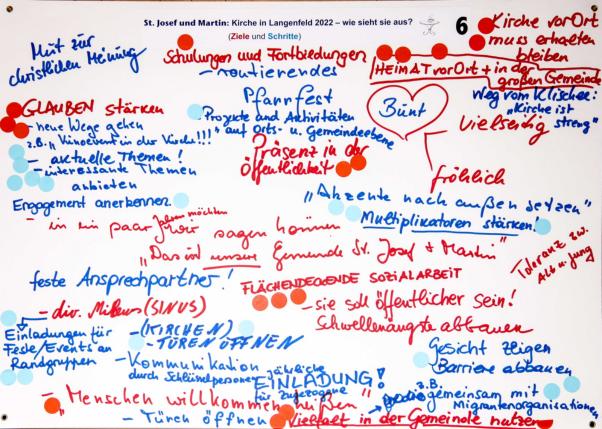 St. Josef und Martin: Kirche in Langenfeld 2022 – wie sieht sie aus?
(Ziele und Schritte)
6
Mut zur
christlichen Meinung
Schulungen und Fortbildungen
- routierendes
Pfarrfest
Kirche vor Ort
muss erhalten
bleiben
HEIMAT vor Ort + in der
großen Gemeinde
Weg vom Klischee:
"Kirche ist
streng"
Vielseitig
Bunt
fröhlich
GLAUBEN stärken
- neue Wege gehen
z.B. "Kinoevent in der Kirche!!!"
- aktuelle Themen!
- interessante Themen
anbieten
Projekte und Aktivitäten
auf Orts- u. Gemeindeebene
Präsenz in der
Öffentlichkeit
Engagement anerkennen
"Akzente nach außen setzen"
Multiplikatoren stärken!
- in ein paar Jahren möchten
wir sagen können
"Das ist unsere Gemeinde St. Josef + Martin"
Toleranz zw.
Alt u. Jung
feste Ansprechpartner!
FLÄCHENDECKENDE SOZIALARBEIT
- sie soll öffentlicher sein!
Schwellenängste abbauen
- div. Milieus (SINUS)
Einladungen für
Feste/Events an
Randgruppen
- (KIRCHEN)
- TÜREN ÖFFNEN
Gesicht zeigen
Barriere abbauen
- Kommunikation
durch Schlüsselpersonen
jährliche
EINLADUNG!
für Zugezogene
z.B.
gemeinsam mit
Migrantenorganisationen
- "Menschen willkommen heißen"
- Türen öffnen
Vielfalt in der Gemeinde nutzen